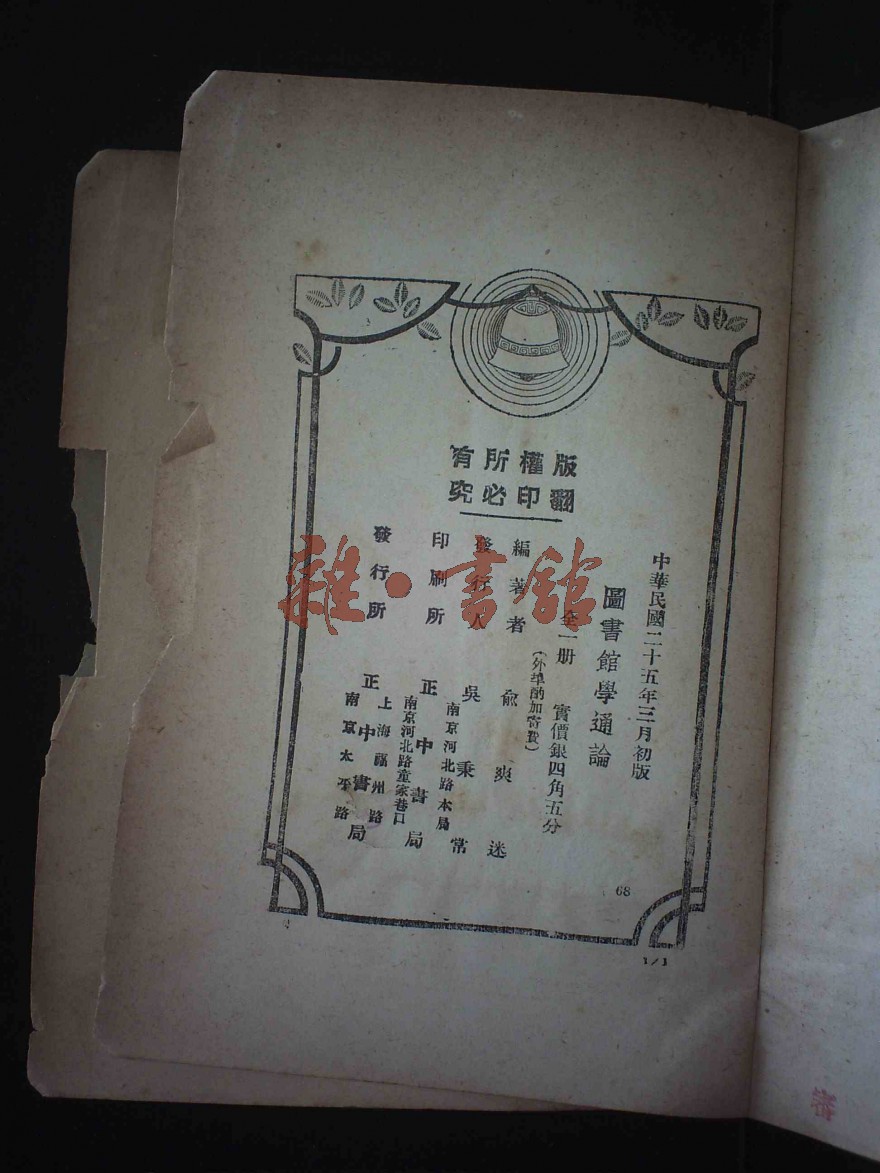 版權所有
翻印必究
中華民國二十五年三月初版
圖書館學通論
全一册 實價銀四角五分
(外埠酌加寄費)
編著者 俞爽迷
發行人 吳秉常
南京河北路本局
印刷所 正中書局
南京河北路童家巷口
發行所 正中書局
上海福州路
南京太平路
68
1/1
雜·書館